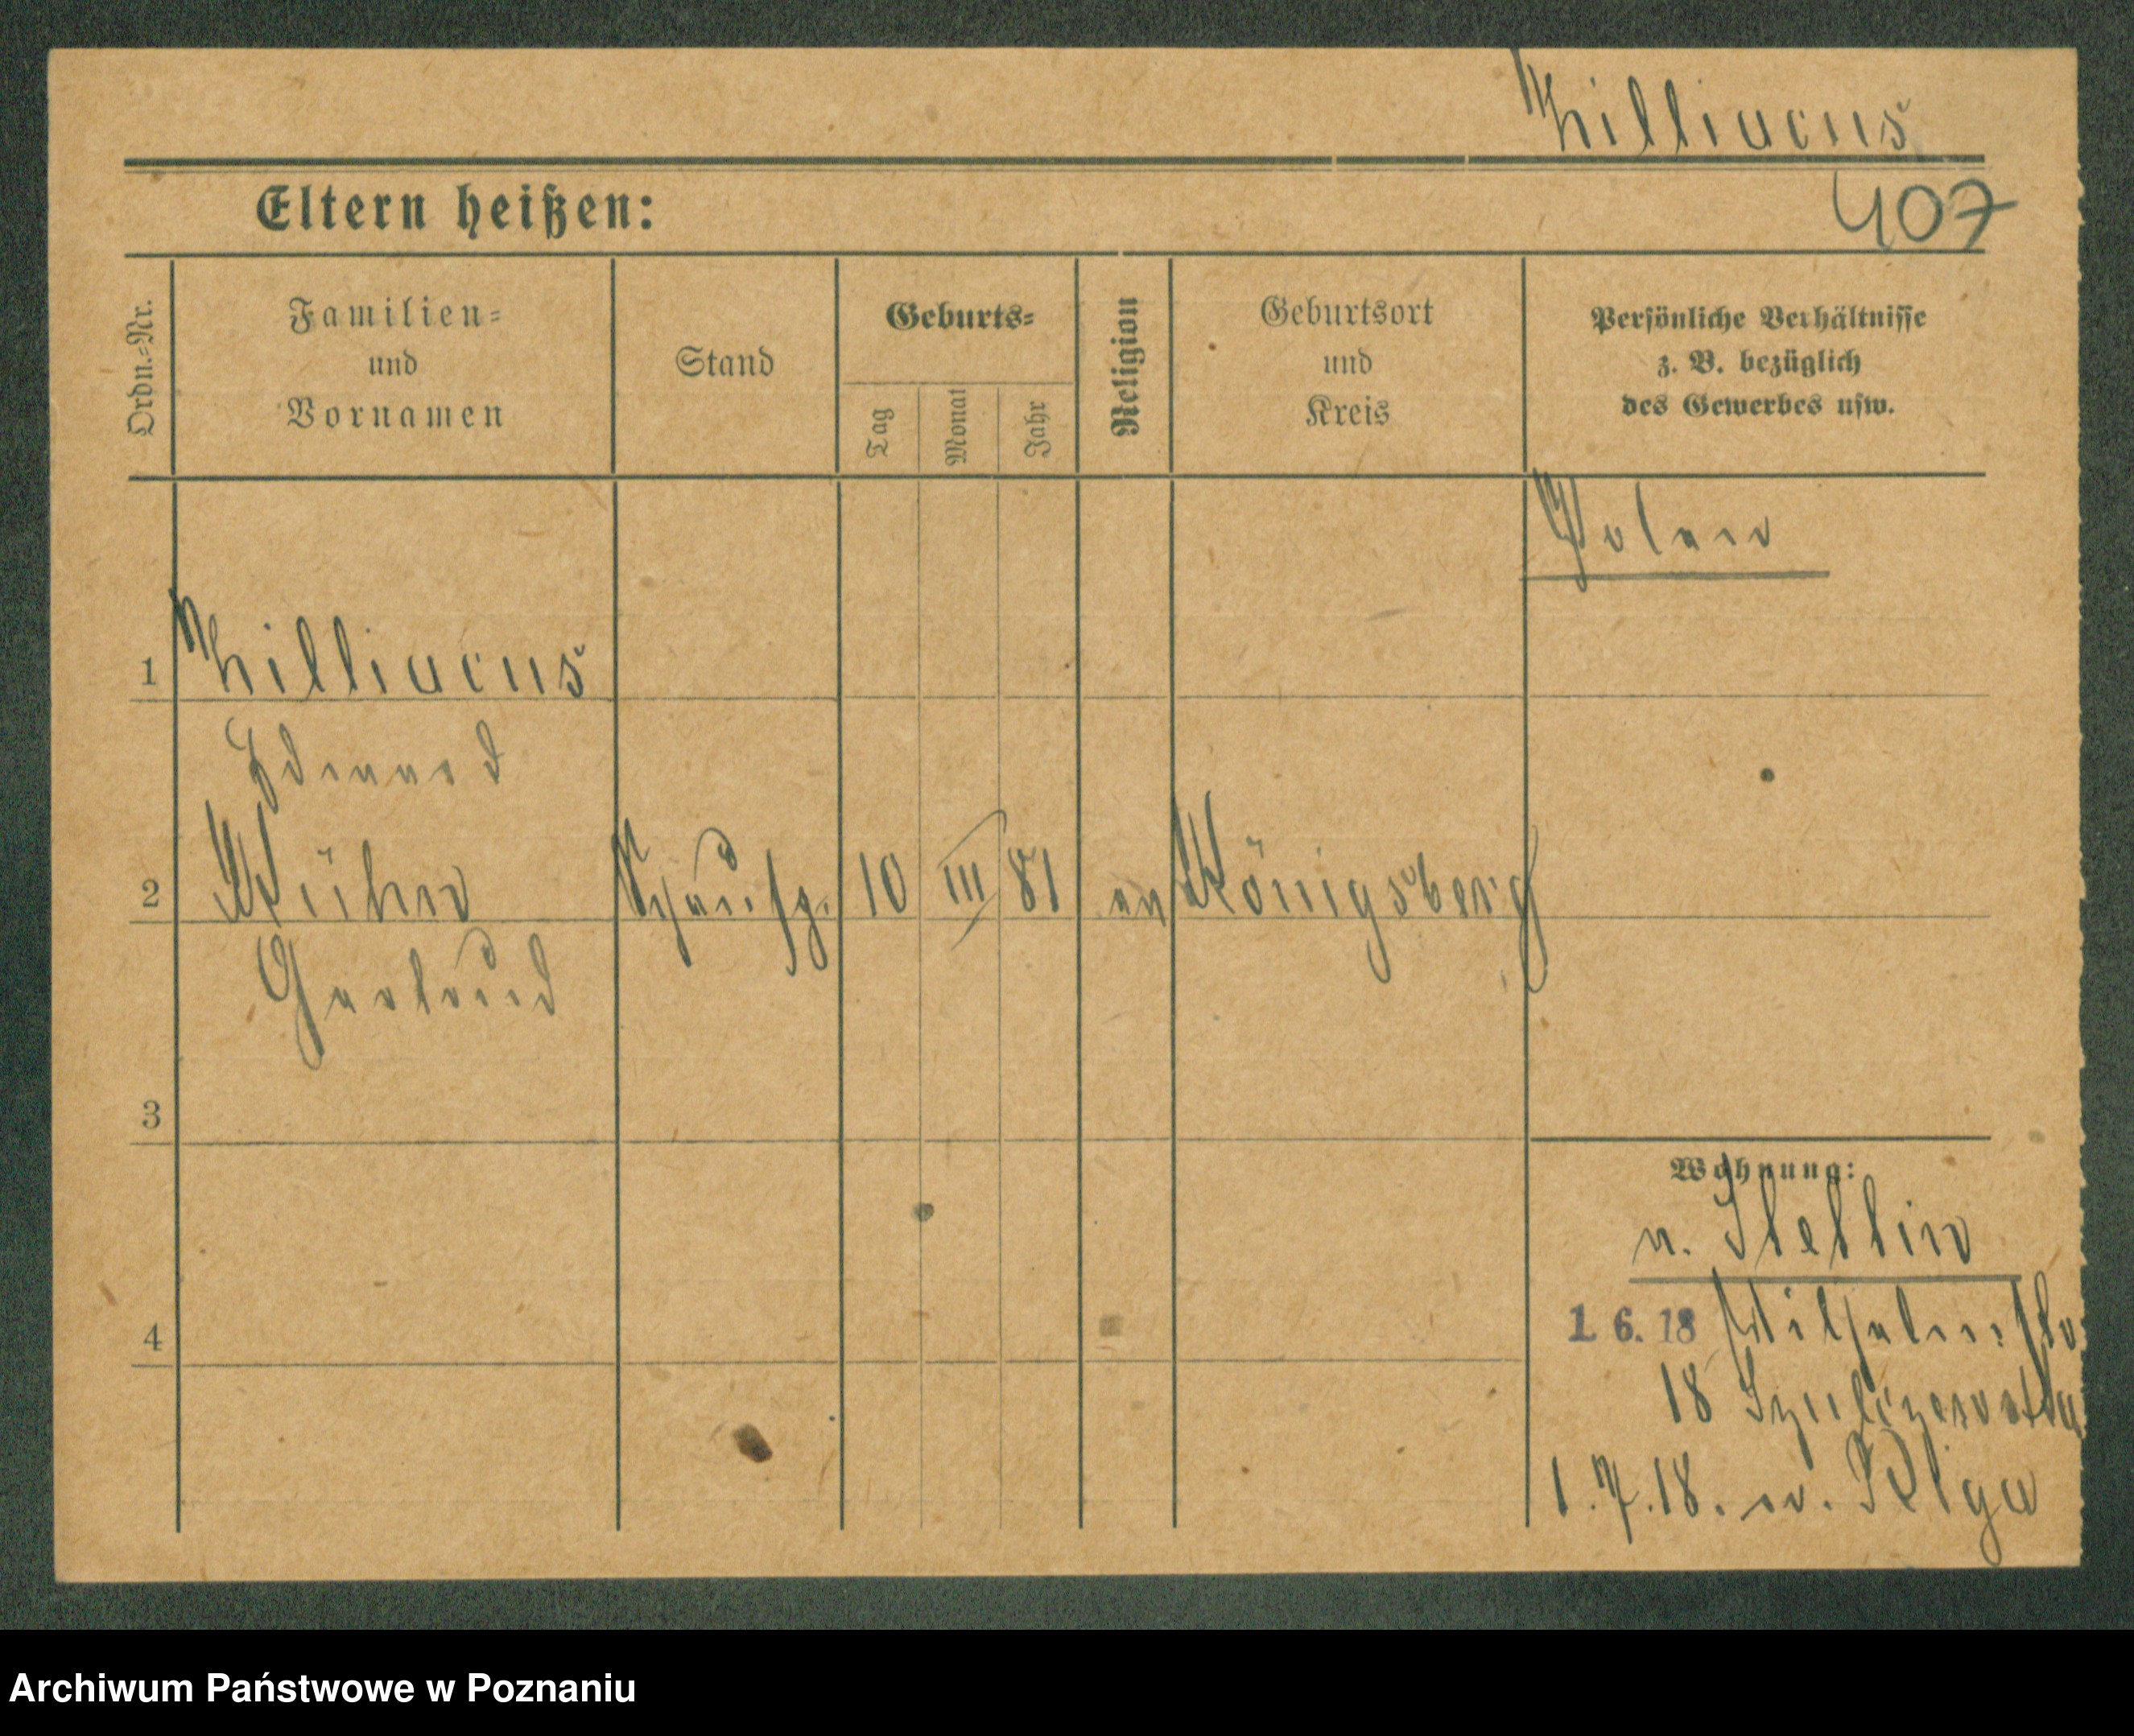 Zilliacus
Eltern heißen:
407
Ordn.=Nr.
Familien=
und
Vornamen
Stand
Geburts=
Tag
Monat
Jahr
Religion
Geburtsort
und
Kreis
Persönliche Verhältnisse
z. B. bezüglich
des Gewerbes usw.
Polen
1 Zilliacus
Eduard
2 Kühn 10 III 81 Königsberg
Gertrud
3
4
Wohnung:
n. Stettin
1. 6. 18 Wilhelmstr
18
1.7.18. n. Riga
Archiwum Państwowe w Poznaniu